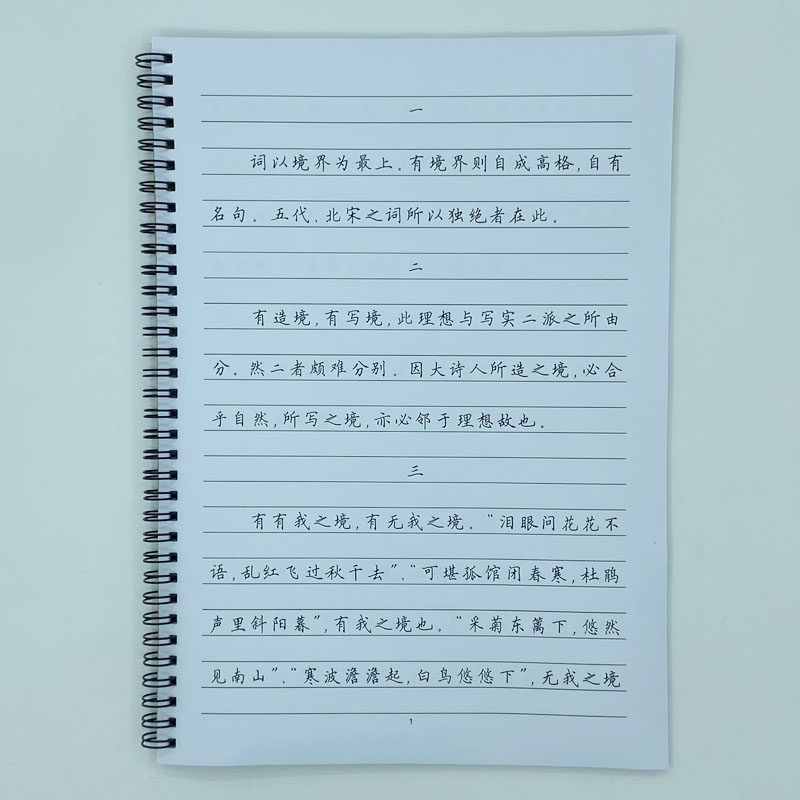 一
词以境界为最上。有境界则自成高格,自有
名句。五代、北宋之词所以独绝者在此。
二
有造境,有写境,此理想与写实二派之所由
分。然二者颇难分别。因大诗人所造之境,必合
乎自然,所写之境,亦必邻于理想故也。
三
有有我之境,有无我之境。“泪眼问花花不
语,乱红飞过秋千去”、“可堪孤馆闭春寒,杜鹃
声里斜阳暮”,有我之境也。“采菊东篱下,悠然
见南山”、“寒波澹澹起,白鸟悠悠下”,无我之境
1